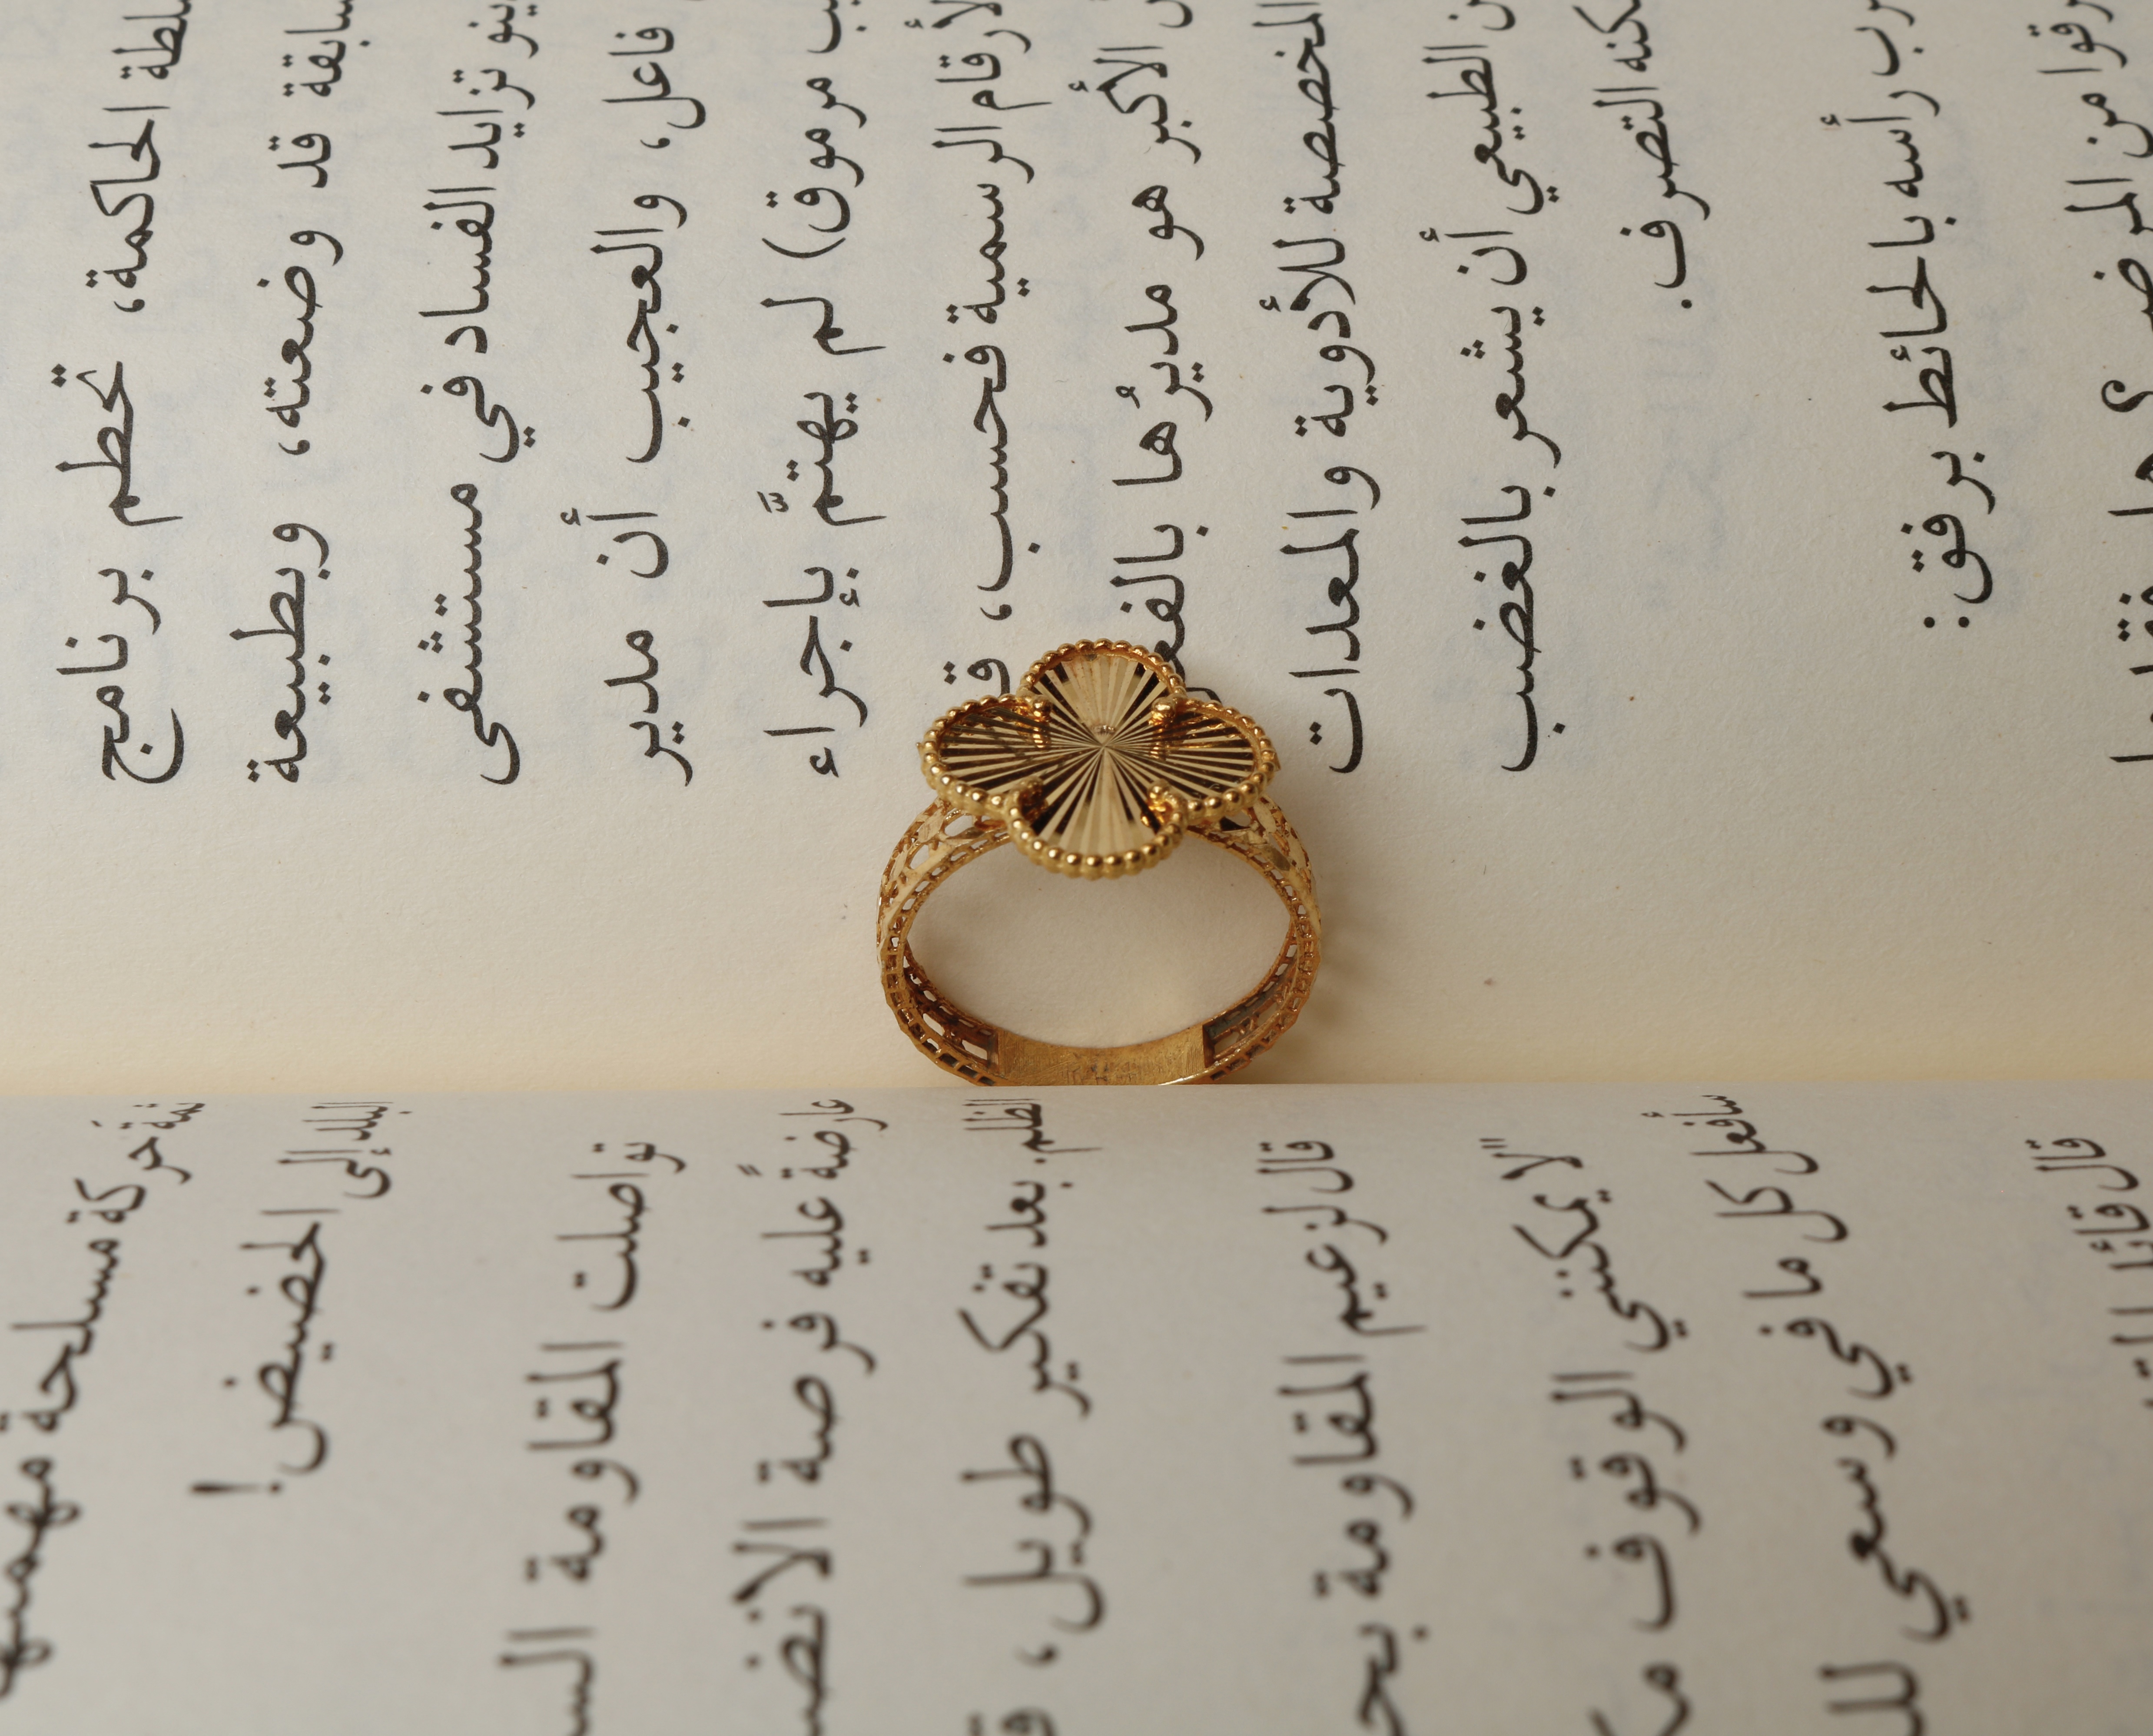 الحاكمة، تحطم برنامج
سابقة قد وضعته، وبطبيعة
تزايد الفساد في مستشفى
فاعل، والعجيب أن مدير
مرموق) لم يهتمَّ بإجراء
الأرقام الرسمية فحسب،
الأكبر هو مديرُها
المخصصة للأدوية والمعدات
الطبيعي أن يشعر بالغضب
التصرف.
رأسه بالحائط برفق:
من المرضى؟
ثمة حركة مسلحة
البلد إلى الحضيض!
تواصلت المقاومة
عارضةً عليه فرصة
الظلم. بعد تفكير طويل،
قال لزعيم المقاومة
"لا يمكنني الوقوف
سأفعل كل ما في وسعي
قال قائد